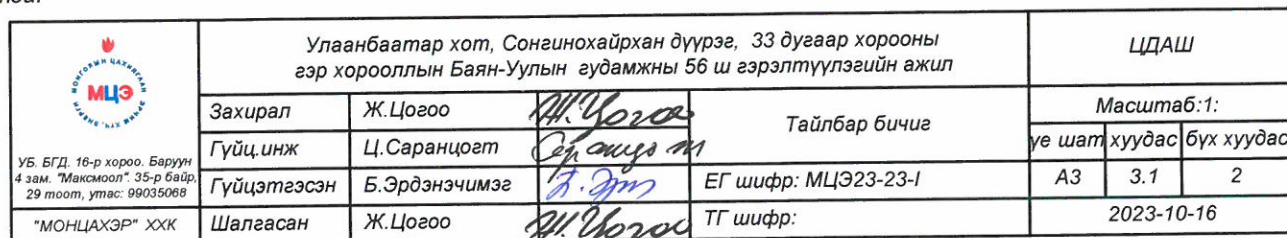 МОНГОЛЫН ЦАХИЛГАН ЭРЧИМ ХҮЧ, ЭНЕРГИ
МЦЭ
УБ. БГД. 16-р хороо. Баруун
4 зам. "Максмоол". 35-р байр,
29 тоот, утас: 99035068
"МОНЦАХЭР" ХХК
Улаанбаатар хот, Сонгинохайрхан дүүрэг, 33 дугаар хорооны
гэр хорооллын Баян-Уулын гудамжны 56 ш гэрэлтүүлэгийн ажил
ЦДАШ
Захирал Ж.Цогоо Ж.Цогоо
Гүйц.инж Ц.Саранцогт
Гүйцэтгэсэн Б.Эрдэнэчимэг
Шалгасан Ж.Цогоо Ж.Цогоо
Тайлбар бичиг
ЕГ шифр: МЦЭ23-23-I
ТГ шифр:
Масштаб:1:
үе шат хуудас бүх хуудас
А3 3.1 2
2023-10-16